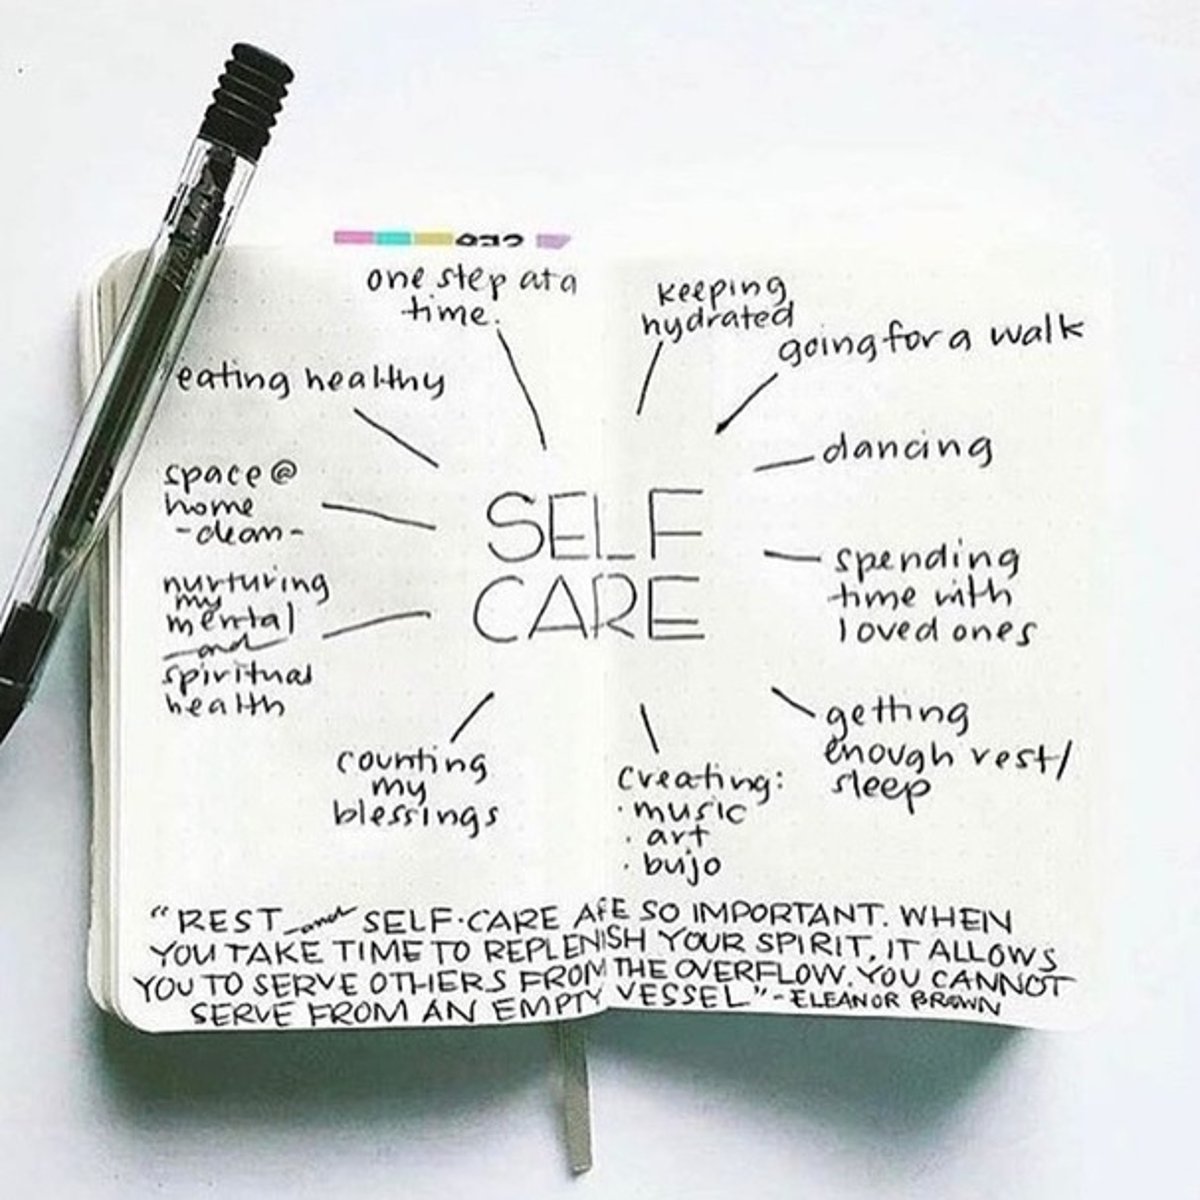 one step at a
time.
keeping
hydrated
going for a walk
eating healthy
dancing
space @
home
-clean-
SELF
CARE
spending
time with
loved ones
nurturing
my
mental
and
spiritual
health
getting
enough rest/
sleep
counting
my
blessings
creating:
· music
· art
· bujo
"REST and SELF-CARE ARE SO IMPORTANT. WHEN
YOU TAKE TIME TO REPLENISH YOUR SPIRIT, IT ALLOWS
YOU TO SERVE OTHERS FROM THE OVERFLOW. YOU CANNOT
SERVE FROM AN EMPTY VESSEL" - ELEANOR BROWN